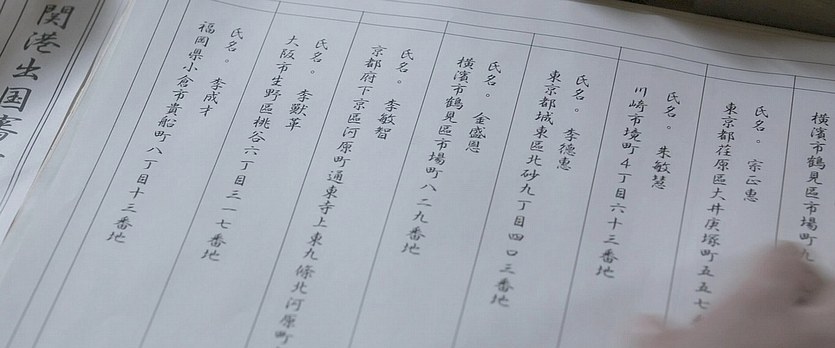 横濱市鶴見區市場町九
氏名。宗正惠
東京都荏原區大井庚塚町五五七
氏名。朱敏慧
川崎市境町4丁目六十三番地
氏名。李德惠
東京都城東區北砂九丁目四口三番地
氏名。金盛恩
横濱市鶴見區市場町八二九番地
氏名。李敏智
京都府下京區河原町通東寺上東九條北河原町
氏名。李獸革
大阪市生野區桃谷六丁目三一七番地
氏名。李成才
福岡県小倉市貴船町八丁目十三番地
関港出国審